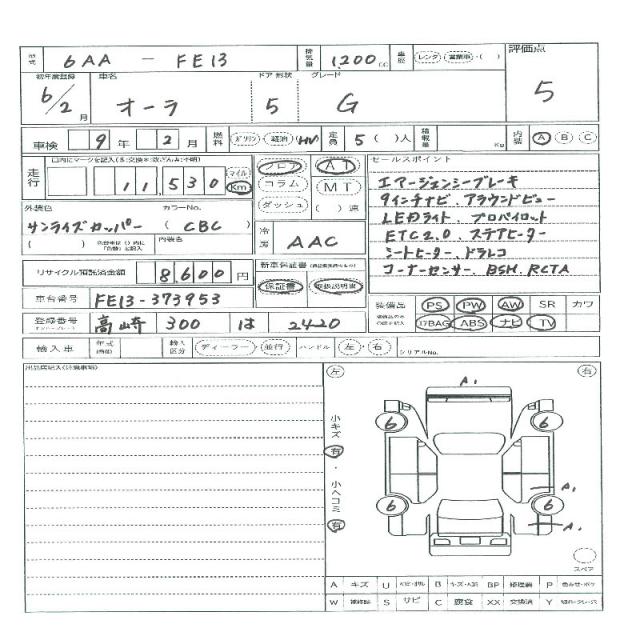 型式 6AA - FE13 排気量 1,200 cc 車歴 レンタ 営業車 ( ) 評価点
初年度登録 車名 ドア 形状 グレード
6/2 月 オーラ 5 G 5
車検 9 年 2 月 燃料 ガソリン 軽油 (HV) 定員 5 ( )人 積載量 Kg 内装 A B C
走行 11,530 マイル Km フロア AT セールスポイント
コラム MT エマージェンシーブレーキ
9インチナビ、アラウンドビュー
外装色 カラーNo. ダッシュ ( ) 速 LEDライト、プロパイロット
サンライズカッパー ( CBC ) 冷房 AAC ETC2.0、ステアヒーター
( ) 内装色 シートヒーター、ドラレコ
リサイクル預託済金額 8,600 円 新車保証書 コーナーセンサー、BSM、RCTA
保証書 取扱説明書
車台番号 FE13-373953 装備品 PS PW AW SR カワ
登録番号 高崎 300 は 2420 17BAG ABS ナビ TV
輸入車 年式 輸入区分 ディーラー 並行 ハンドル 左 右 シリアルNo.
左 右
A1
小キズ 有 6 6
・
小ヘコミ 有 A1
6 6
A1
スペア
A キズ U B BP P
W S サビ C 腐食 XX 交換済 Y